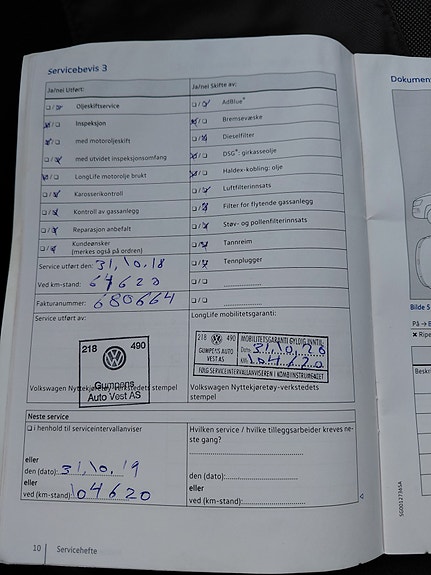 Servicebevis 3
Ja/nei Utført:
Ja/nei Skifte av:
Oljeskiftservice
AdBlue®
Inspeksjon
Bremsevæske
med motoroljeskift
Dieselfilter
med utvidet inspeksjonsomfang
DSG®: girkasseolje
LongLife motorolje brukt
Haldex-kobling: olje
Karosserikontroll
Luftfilterinnsats
Kontroll av gassanlegg
Filter for flytende gassanlegg
Reparasjon anbefalt
Støv- og pollenfilterinnsats
Kundeønsker
(merkes også på ordren)
Tannreim
Tennplugger
Service utført den: 31,10,18
Ved km-stand:
Fakturanummer: 680664
Service utført av:
LongLife mobilitetsgaranti:
218 490
Gumpens
Auto Vest AS
Volkswagen Nyttekjøretøy-verkstedets
stempel
218 490
GUMPENS AUTO
VEST AS
MOBILITETSGARANTI GYLDIG INNTIL:
Dato: 31,10,20
KM: 104620
FØLG SERVICEINTERVALLANVISEREN I KOMBIINSTRUMENTET
Volkswagen Nyttekjøretøy-verkstedets
stempel
Neste service
i henhold til serviceintervallanviser
eller
den (dato): 31,10,19
eller
ved (km-stand): 104620
Hvilken service / hvilke tilleggsarbeider kreves ne-
ste gang?
den (dato):
eller
ved (km-stand):
10 Servicehefte
SG00127365A
Dokumen
Bilde 5
På → B
Ripe
Beskri